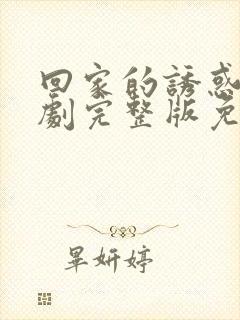 回家的誘惑
劇完整版免
畢妍婷